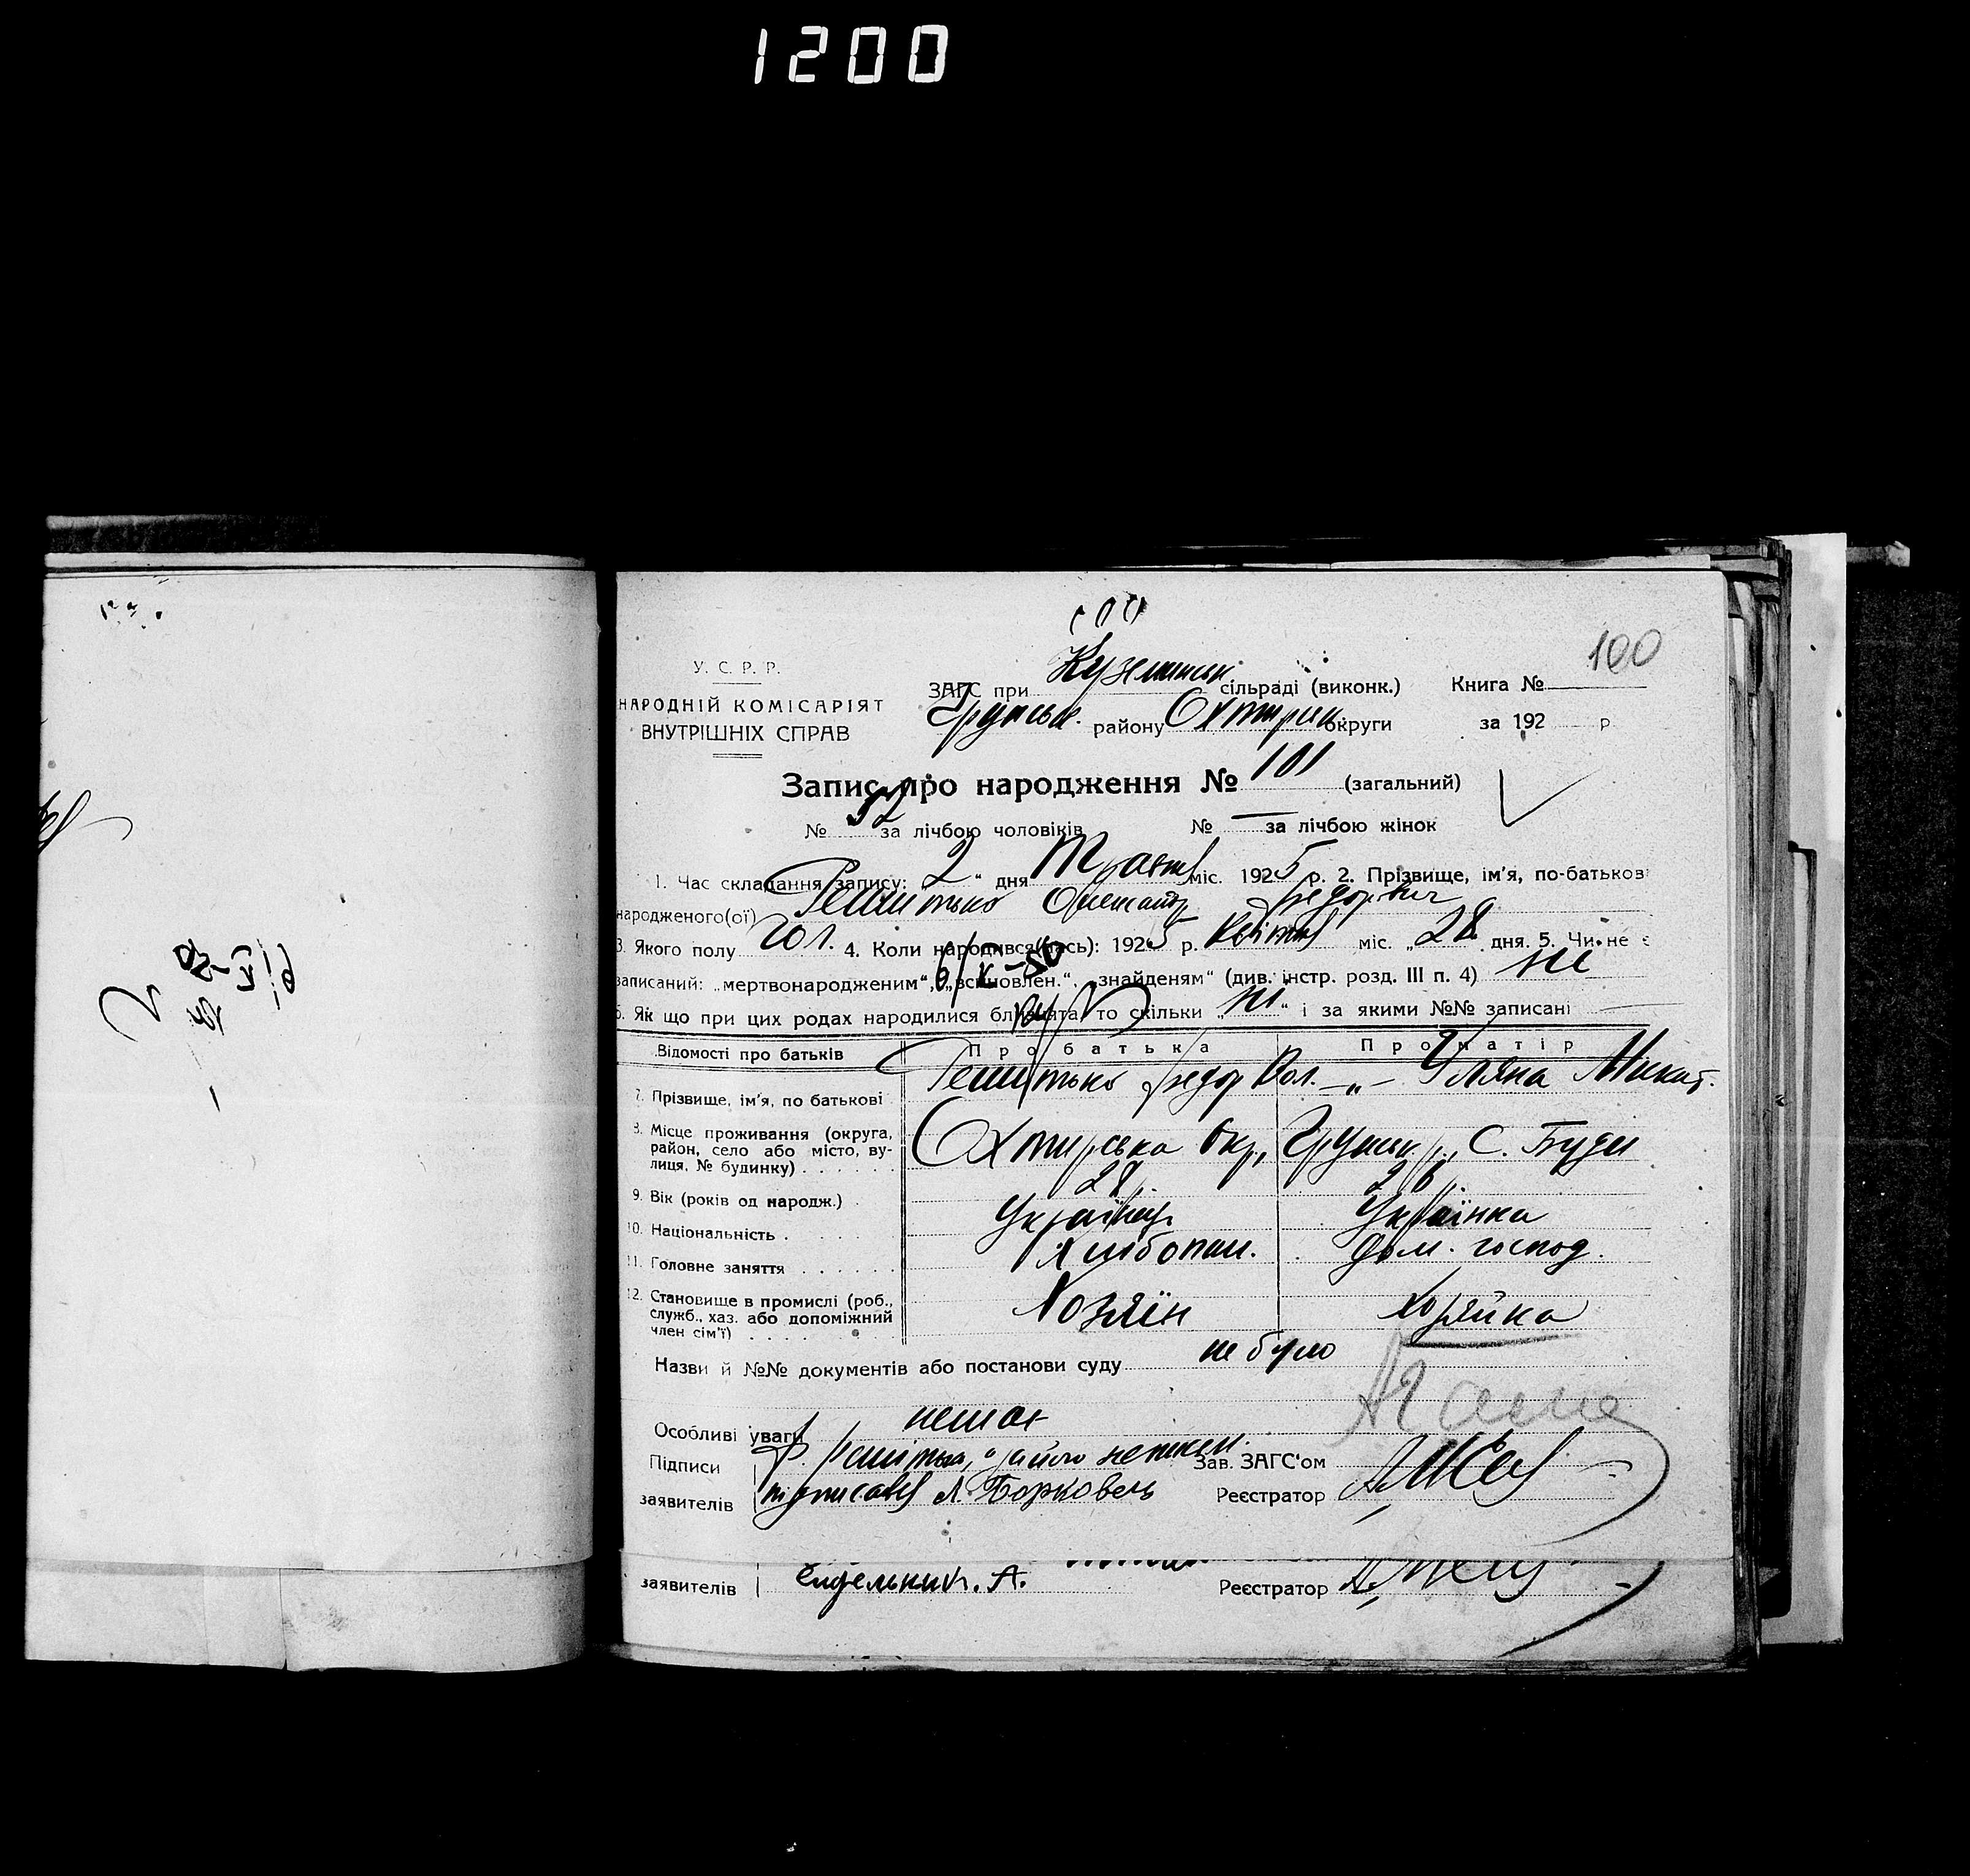 1200
100
У. С. Р. Р.
НАРОДНІЙ КОМІСАРІЯТ
ВНУТРІШНІХ СПРАВ
ЗАГС при Куземинськ сільраді (виконк.) Книга №
Грунськ. району Охтирськ. округи за 192 р.
Запис про народження № 101 (загальний)
№ 52 за лічбою чоловіків № — за лічбою жінок
1. Час складання запису: „2“ дня Травня міс. 1925 р. 2. Прізвище, ім'я, по-батькові
народженого(ої) Решитько Олександр Федорович
3. Якого полу чол. 4. Коли народився(лась): 1925 р. Квітня міс. „28“ дня. 5. Чи не є
записаний: „мертвонародженим“, „всиновлен.“, „знайденям“ (див. інстр. розд. III п. 4) ні
6. Як що при цих родах народилися близнята, то скільки „ні“ і за якими №№ записані
Відомості про батьків Про батька Про матір
7. Прізвище, ім'я, по батькові Решитько Федор Вол. —„— Уляна Микит.
8. Місце проживання (округа, район, село або місто, вулиця, № будинку) Охтирська окр., Грунськ. р., С. Буди
9. Вік (років од народж.) 28 26
10. Національність Українець Українка
11. Головне заняття Хлібопаш. Дом. господ.
12. Становище в промислі (роб., служб., хаз. або допоміжний член сім'ї) Хозяїн Хозяйка
Назви й №№ документів або постанови суду не було
Особливі уваги немає
Підписи Зав. ЗАГС'ом
заявителів підписав Л. Борковець Реєстратор
заявителів А. Реєстратор